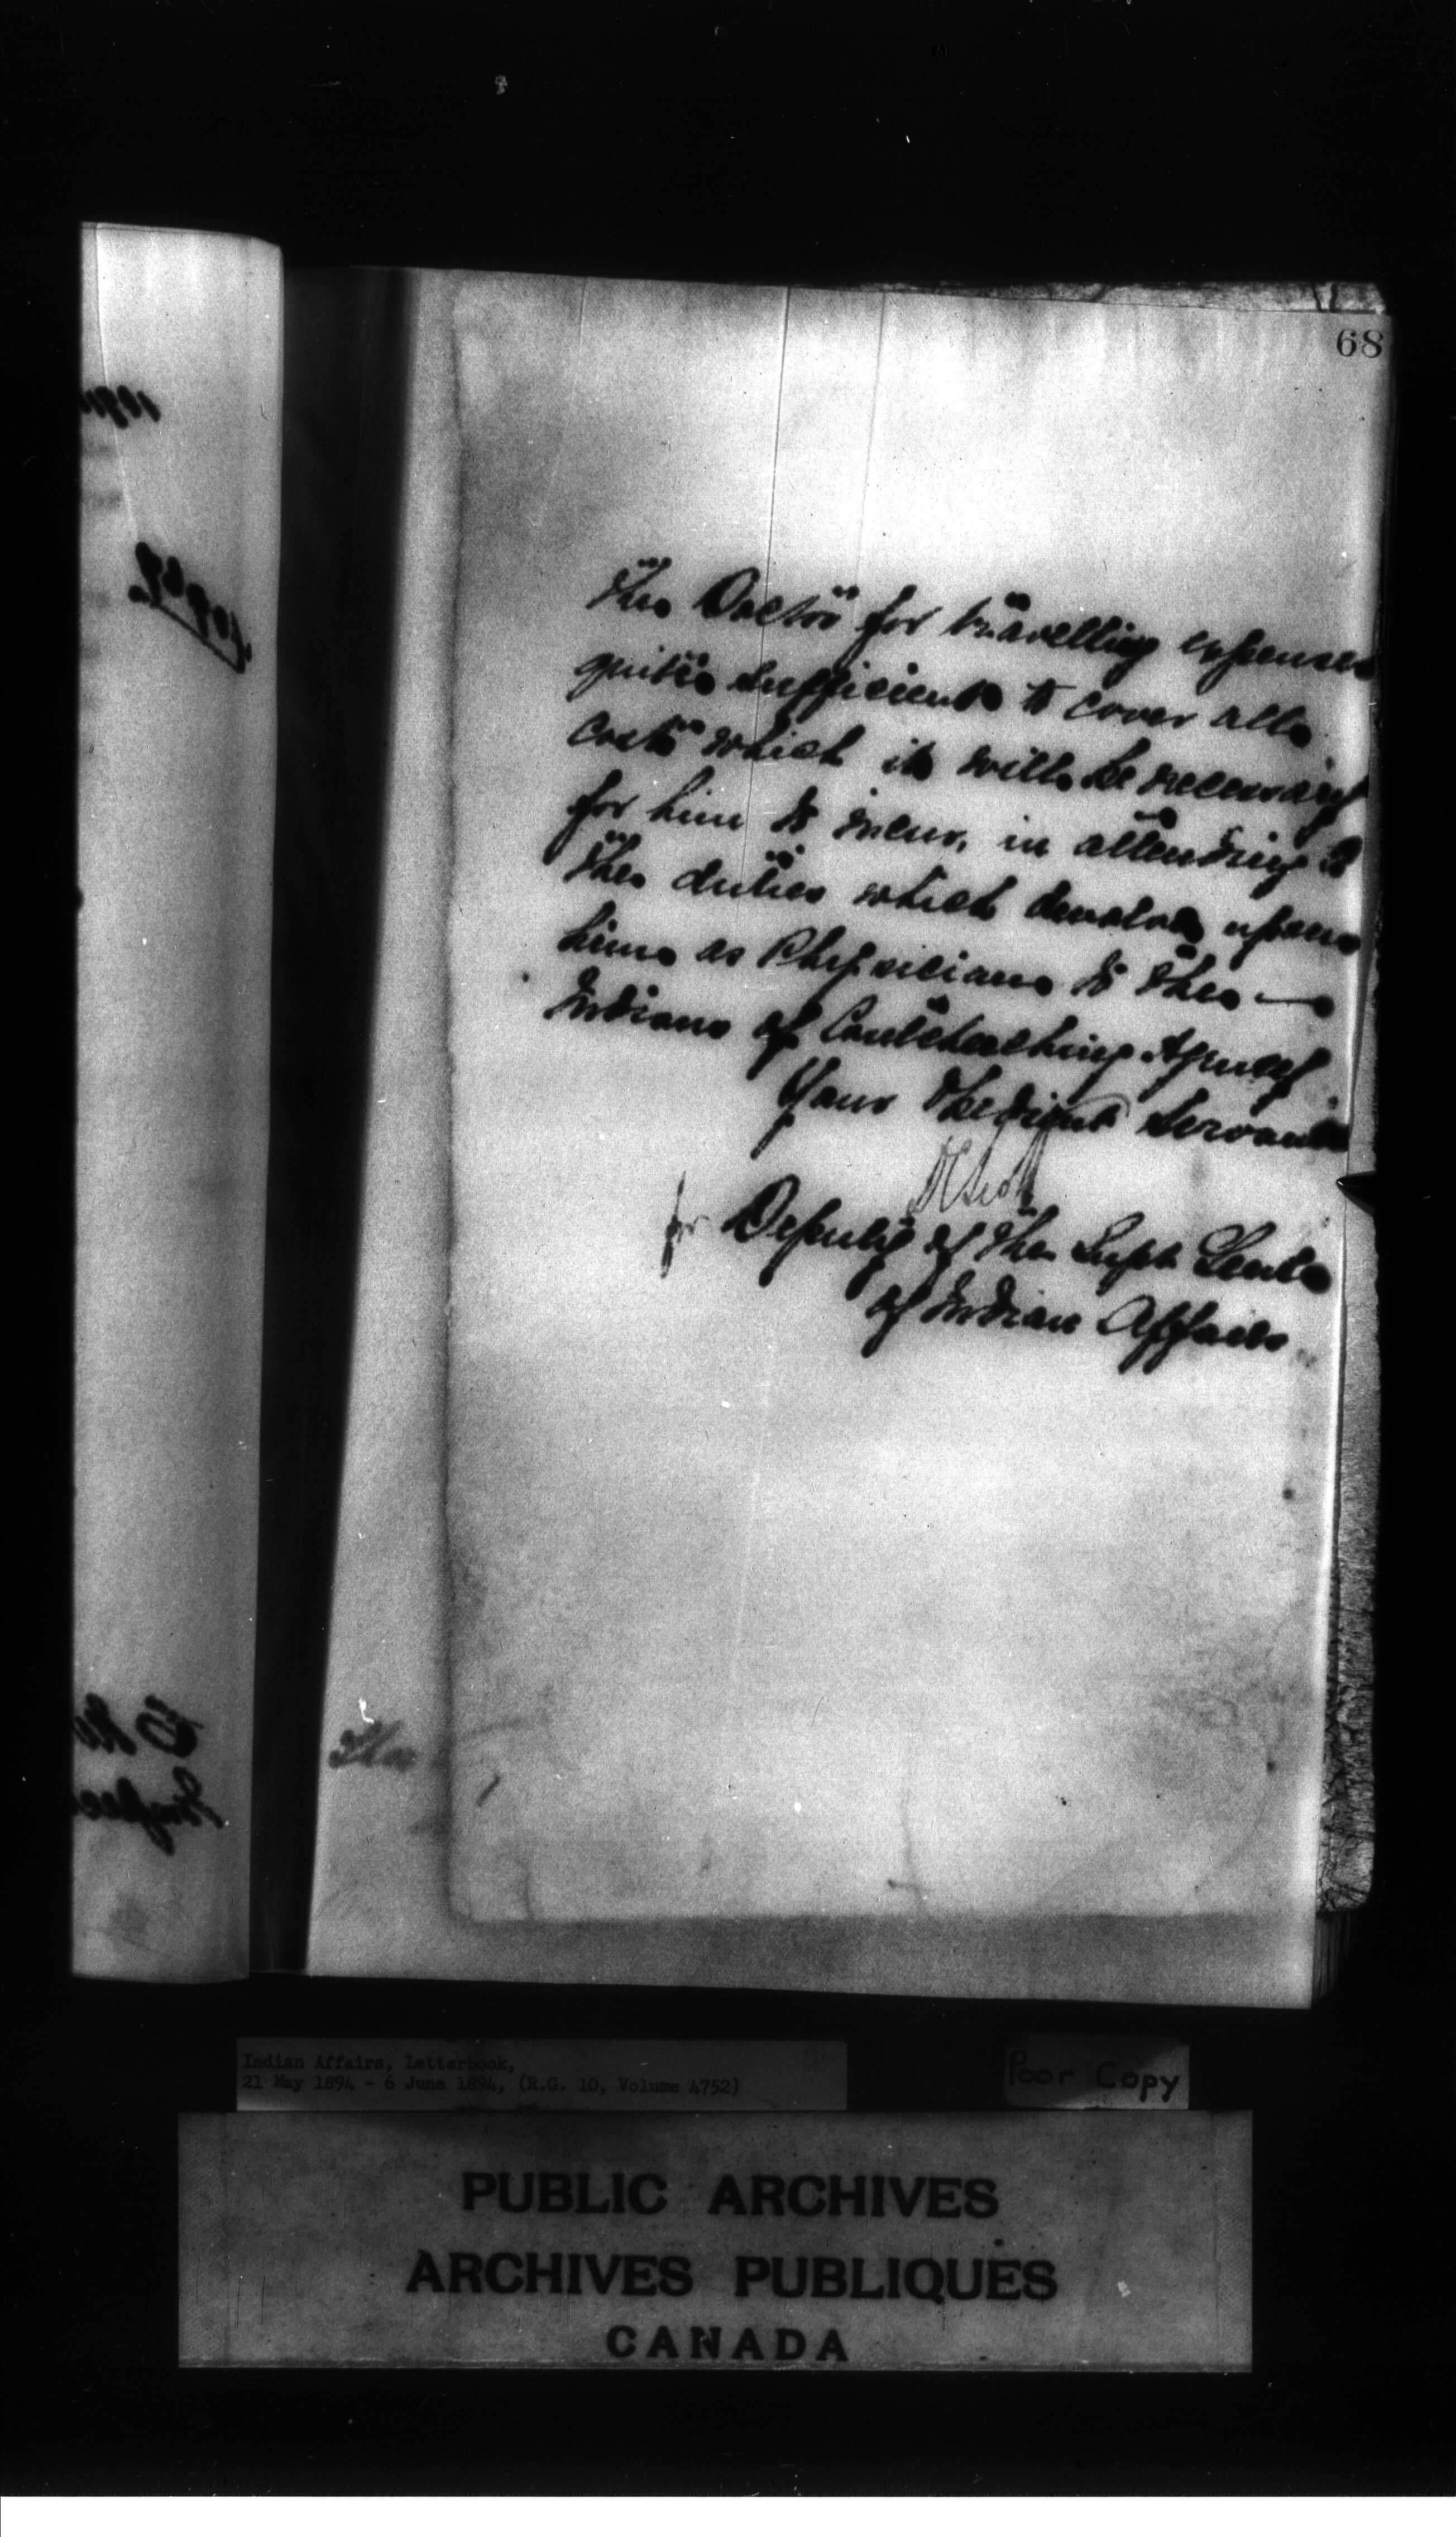 68
the Doctor for travelling expenses
quite sufficient to cover all
costs which it will be necessary
for him to incur, in attending to
the duties which devolve upon
him as Physician to the —
Indians of Couchiching Agency
Your obedient Servant
for Deputy of the Supt. Genl.
of Indian Affairs
The
Indian Affairs, Letterbook,
21 May 1894 - 6 June 1894, (R.G. 10, Volume 4752)
Poor Copy
PUBLIC ARCHIVES
ARCHIVES PUBLIQUES
CANADA